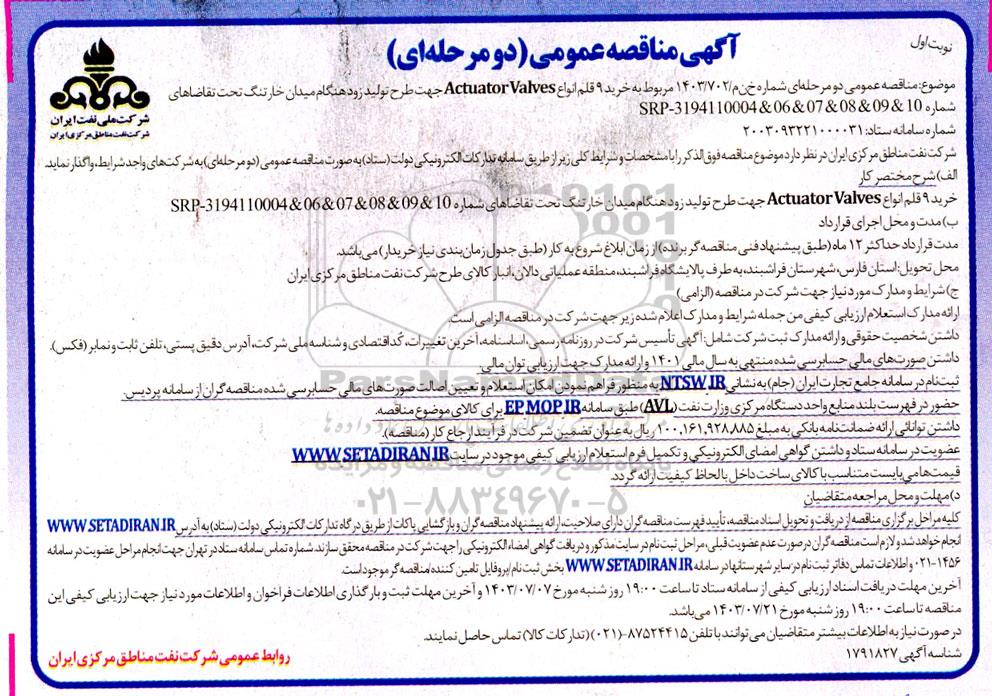 نوبت اول
آگهی مناقصه عمومی (دو مرحله‌ای)
شرکت ملی نفت ایران
شرکت نفت مناطق مرکزی ایران
موضوع: مناقصه عمومی دو مرحله‌ای شماره خ‌ن‌م/۱۴۰۳/۷۰۲ مربوط به خرید ۹ قلم انواع Actuator Valves جهت طرح تولید زودهنگام میدان خارتنگ تحت تقاضاهای
شماره SRP-3194110004 & 06 & 07 & 08 & 09 & 10
شماره سامانه ستاد: ۲۰۰۳۰۹۳۲۲۱۰۰۰۰۳۱
شرکت نفت مناطق مرکزی ایران در نظر دارد موضوع مناقصه فوق‌الذکر را با مشخصات و شرایط کلی زیر از طریق سامانه تدارکات الکترونیکی دولت (ستاد) به صورت مناقصه عمومی (دو مرحله‌ای) به شرکت‌های واجد شرایط، واگذار نماید.
الف) شرح مختصر کار
خرید ۹ قلم انواع Actuator Valves جهت طرح تولید زودهنگام میدان خارتنگ تحت تقاضاهای شماره SRP-3194110004 & 06 & 07 & 08 & 09 & 10
ب) مدت و محل اجرای قرارداد
مدت قرارداد حداکثر ۱۲ ماه (طبق پیشنهاد فنی مناقصه‌گر برنده) از زمان ابلاغ شروع به کار (طبق جدول زمان‌بندی نیاز خریدار) می‌باشد.
محل تحویل: استان فارس، شهرستان فراشبند، به طرف پالایشگاه فراشبند، منطقه عملیاتی دالان، انبار کالای طرح شرکت نفت مناطق مرکزی ایران
ج) شرایط و مدارک مورد نیاز جهت شرکت در مناقصه (الزامی)
ارائه مدارک استعلام ارزیابی کیفی من جمله شرایط و مدارک اعلام شده زیر جهت شرکت در مناقصه الزامی است.
داشتن شخصیت حقوقی و ارائه مدارک ثبت شرکت شامل: آگهی تأسیس شرکت در روزنامه رسمی، اساسنامه، آخرین تغییرات، کُد اقتصادی و شناسه ملی شرکت، آدرس دقیق پستی، تلفن ثابت و نمابر (فکس).
داشتن صورت‌های مالی حسابرسی شده منتهی به سال مالی ۱۴۰۱ و ارائه مدارک جهت ارزیابی توان مالی.
ثبت‌نام در سامانه جامع تجارت ایران (جام) به نشانی NTSW.IR به منظور فراهم نمودن امکان استعلام و تعیین اصالت صورت‌های مالی حسابرسی شده مناقصه‌گران از سامانه پردیس.
حضور در فهرست بلند منابع واحد دستگاه مرکزی وزارت نفت (AVL) طبق سامانه EP.MOP.IR برای کالای موضوع مناقصه.
داشتن توانائی ارائه ضمانت‌نامه بانکی به مبلغ ۱۰۰,۱۶۱,۹۲۸,۸۸۵ ریال به عنوان تضمین شرکت در فرآیند ارجاع کار (مناقصه).
عضویت در سامانه ستاد و داشتن گواهی امضای الکترونیکی و تکمیل فرم استعلام ارزیابی کیفی موجود در سایت WWW.SETADIRAN.IR
قیمت‌ها می‌بایست متناسب با کالای ساخت داخل با لحاظ کیفیت ارائه گردد.
د) مهلت و محل مراجعه متقاضیان
کلیه مراحل برگزاری مناقصه از دریافت و تحویل اسناد مناقصه، تأیید فهرست مناقصه‌گران دارای صلاحیت، ارائه پیشنهاد مناقصه‌گران و بازگشایی پاکات از طریق درگاه تدارکات الکترونیکی دولت (ستاد) به آدرس WWW.SETADIRAN.IR
انجام خواهد شد و لازم است مناقصه‌گران در صورت عدم عضویت قبلی، مراحل ثبت‌نام در سایت مذکور و دریافت گواهی امضاء الکترونیکی را جهت شرکت در مناقصه محقق سازند. شماره تماس سامانه ستاد در تهران جهت انجام مراحل عضویت در سامانه
۰۲۱-۱۴۵۶ و اطلاعات تماس دفاتر ثبت‌نام در سایر شهرستانها در سامانه WWW.SETADIRAN.IR بخش ثبت‌نام/پروفایل تامین کننده/مناقصه‌گر موجود است.
آخرین مهلت دریافت اسناد ارزیابی کیفی از سامانه ستاد تا ساعت ۱۹:۰۰ روز شنبه مورخ ۱۴۰۳/۰۷/۰۷ و آخرین مهلت ثبت و بارگذاری اطلاعات فراخوان و اطلاعات مورد نیاز جهت ارزیابی کیفی این
مناقصه تا ساعت ۱۹:۰۰ روز شنبه مورخ ۱۴۰۳/۰۷/۲۱ می‌باشد.
در صورت نیاز به اطلاعات بیشتر متقاضیان می‌توانند با تلفن ۸۷۵۲۴۴۱۵-(۰۲۱) (تدارکات کالا) تماس حاصل نمایند.
شناسه آگهی ۱۷۹۱۸۲۷
روابط عمومی شرکت نفت مناطق مرکزی ایران
۰۲۱-۸۸۳۴۹۶۷۰-۵